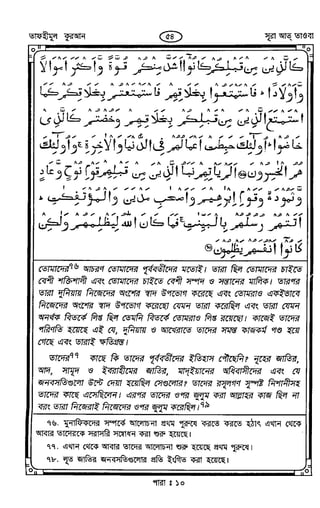 তাফহীমুল কুরআন
৫৪
সূরা আত্ তাওবা
كَالَّذِينَ مِنْ قَبْلِكُمْ كَانُوا أَشَدَّ مِنْكُمْ قُوَّةً وَأَكْثَرَ أَمْوَالًا
وَأَوْلَادًا ۚ فَاسْتَمْتَعُوا بِخَلَاقِهِمْ فَاسْتَمْتَعْتُمْ بِخَلَاقِكُمْ كَمَا
اسْتَمْتَعَ الَّذِينَ مِنْ قَبْلِكُمْ بِخَلَاقِهِمْ وَخُضْتُمْ كَالَّذِي
خَاضُوا ۚ أُولَٰئِكَ حَبِطَتْ أَعْمَالُهُمْ فِي الدُّنْيَا وَالْآخِرَةِ ۚ وَأُولَٰئِكَ
هُمُ الْخَاسِرُونَ ۞ أَلَمْ يَأْتِهِمْ نَبَأُ الَّذِينَ مِنْ قَبْلِهِمْ قَوْمِ نُوحٍ وَعَادٍ
وَثَمُودَ ۙ وَقَوْمِ إِبْرَاهِيمَ وَأَصْحَابِ مَدْيَنَ وَالْمُؤْتَفِكَاتِ ۚ
أَتَتْهُمْ رُسُلُهُمْ بِالْبَيِّنَاتِ ۚ فَمَا كَانَ اللَّهُ لِيَظْلِمَهُمْ وَلَٰكِنْ
كَانُوا أَنْفُسَهُمْ يَظْلِمُونَ ۞
তোমাদের৭৬ আচরণ তোমাদের পূর্ববর্তীদের মতোই। তারা ছিল তোমাদের চাইতে
বেশী শক্তিশালী এবং তোমাদের চাইতে বেশী সম্পদ ও সন্তানের মালিক। তারপর
তারা দুনিয়ায় নিজেদের অংশের স্বাদ উপভোগ করেছে এবং তোমরাও একইভাবে
নিজেদের অংশের স্বাদ উপভোগ করেছো যেমন তারা করেছিল এবং তারা যেমন
অনর্থক বিতর্কে লিপ্ত ছিল তেমনি বিতর্কে তোমরাও লিপ্ত রয়েছো। কাজেই তাদের
পরিণতি হয়েছে এই যে, দুনিয়ায় ও আখেরাতে তাদের সমস্ত কাজকর্ম পণ্ড হয়ে
গেছে এবং তারাই ক্ষতিগ্রস্ত।
তাদের৭৭ কাছে কি তাদের পূর্ববর্তীদের ইতিহাস পৌঁছেনি? নূহের জাতির,
আদ, সামূদ ও ইবরাহীমের জাতির, মাদ্‌ইয়ানের অধিবাসীদের এবং যে
জনবসতিগুলো উল্টে দেয়া হয়েছিল সেগুলোর? তাদের রসূলগণ সুস্পষ্ট নিশানীসহ
তাদের কাছে এসেছিলেন। এরপর তাদের ওপর জুলুম করা আল্লাহর কাজ ছিল না
বরং তারা নিজেরাই নিজেদের ওপর জুলুম করেছিল।৭৮
৭৬. মুনাফিকদের সম্পর্কে আলোচনা প্রথম পুরুষে করতে করতে হঠাৎ এখান থেকে
আবার তাদেরকে সরাসরি সম্বোধন করা শুরু হয়েছে।
৭৭. এখান থেকে আবার তাদের আলোচনা শুরু হয়েছে প্রথম পুরুষে।
৭৮. লূত জাতির জনবসতিগুলোর প্রতি ইংগিত করা হয়েছে।
পারা : ১০